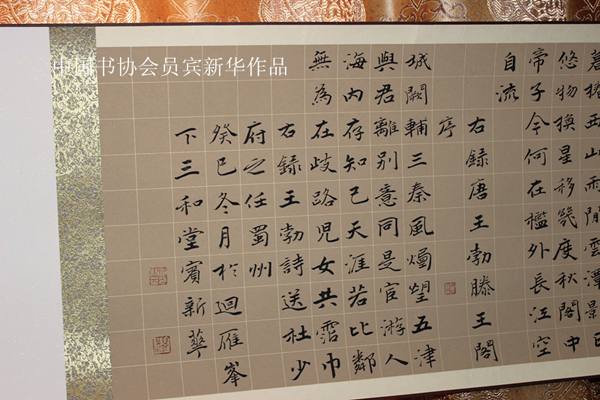 中国书协会员宾新华作品
暮捲西山雨閒雲潭影日
悠物換星移幾度秋閣中
帝子今何在檻外長江空
自流
右録唐王勃滕王閣
序
城闕輔三秦風煙望五津
與君離別意同是宦游人
海内存知己天涯若比鄰
無為在歧路兒女共霑巾
右録王勃詩送杜少
府之任蜀州
癸巳冬月於迴雁峯
下三和堂賓新華